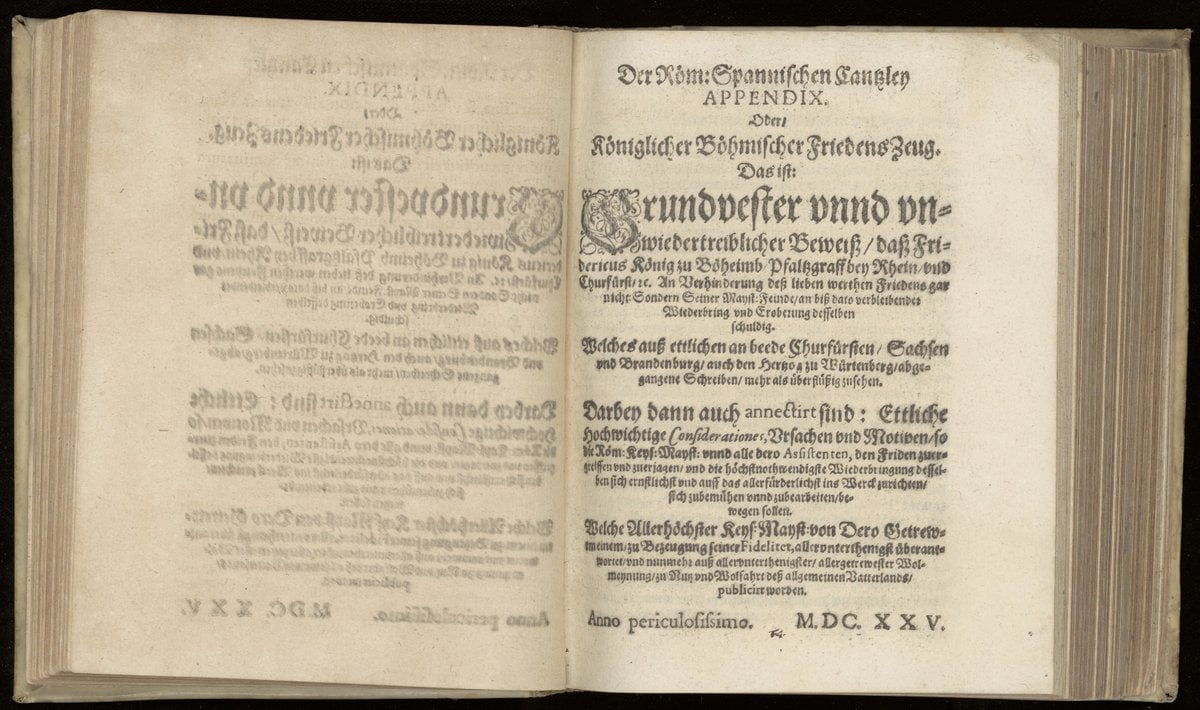 Der Röm: Spannischen Cantzley
APPENDIX.
Oder/
Königlicher Böhmischer Friedens Zeug.
Das ist:
Grundvester vnnd vn-
wiedertreiblicher Beweiß/ daß Fri-
dericus König zu Böheimb/ Pfaltzgraff bey Rhein/ vnd
Churfürst/ ꝛc. An Verhinderung deß lieben werthen Friedens gar
nicht: Sondern Seiner Mayst: Feinde/ an biß dato verbleibender
Wiederbring vnd Eroberung desselben
schuldig.
Welches auß ettlichen an beede Churfürsten/ Sachsen
vnd Brandenburg/ auch den Hertzog zu Würtenberg/ abge-
gangene Schreiben/ mehr als überflüßig zusehen.
Darbey dann auch annectirt sind: Ettliche
Hochwichtige Considerationes, Vrsachen vnd Motiven/ so
die Röm: Keys: Mayst: vnnd alle dero Assistenten, den Friden zuer-
greiffen vnd zuerjagen/ vnd die höchstnothwendigste Wiederbringung dessel-
ben sich ernstlichst vnd auff das allerfürderlichst ins Werck zurichten/
sich zubemühen vnnd zubearbeiten/ be-
wegen sollen.
Welche Allerhöchster Keys: Mayst: von Dero Getrew-
meinem/ zu Bezeugung seiner Fideliter, allervnterthenigst überant-
wortet/ vnd nunmehr auß allervnterthenigster/ allergetrewester Wol-
meynung/ zu Nutz vnd Wolfahrt deß allgemeinen Vatterlands/
publicirt worden.
Anno periculosissimo. M. DC. XXV.